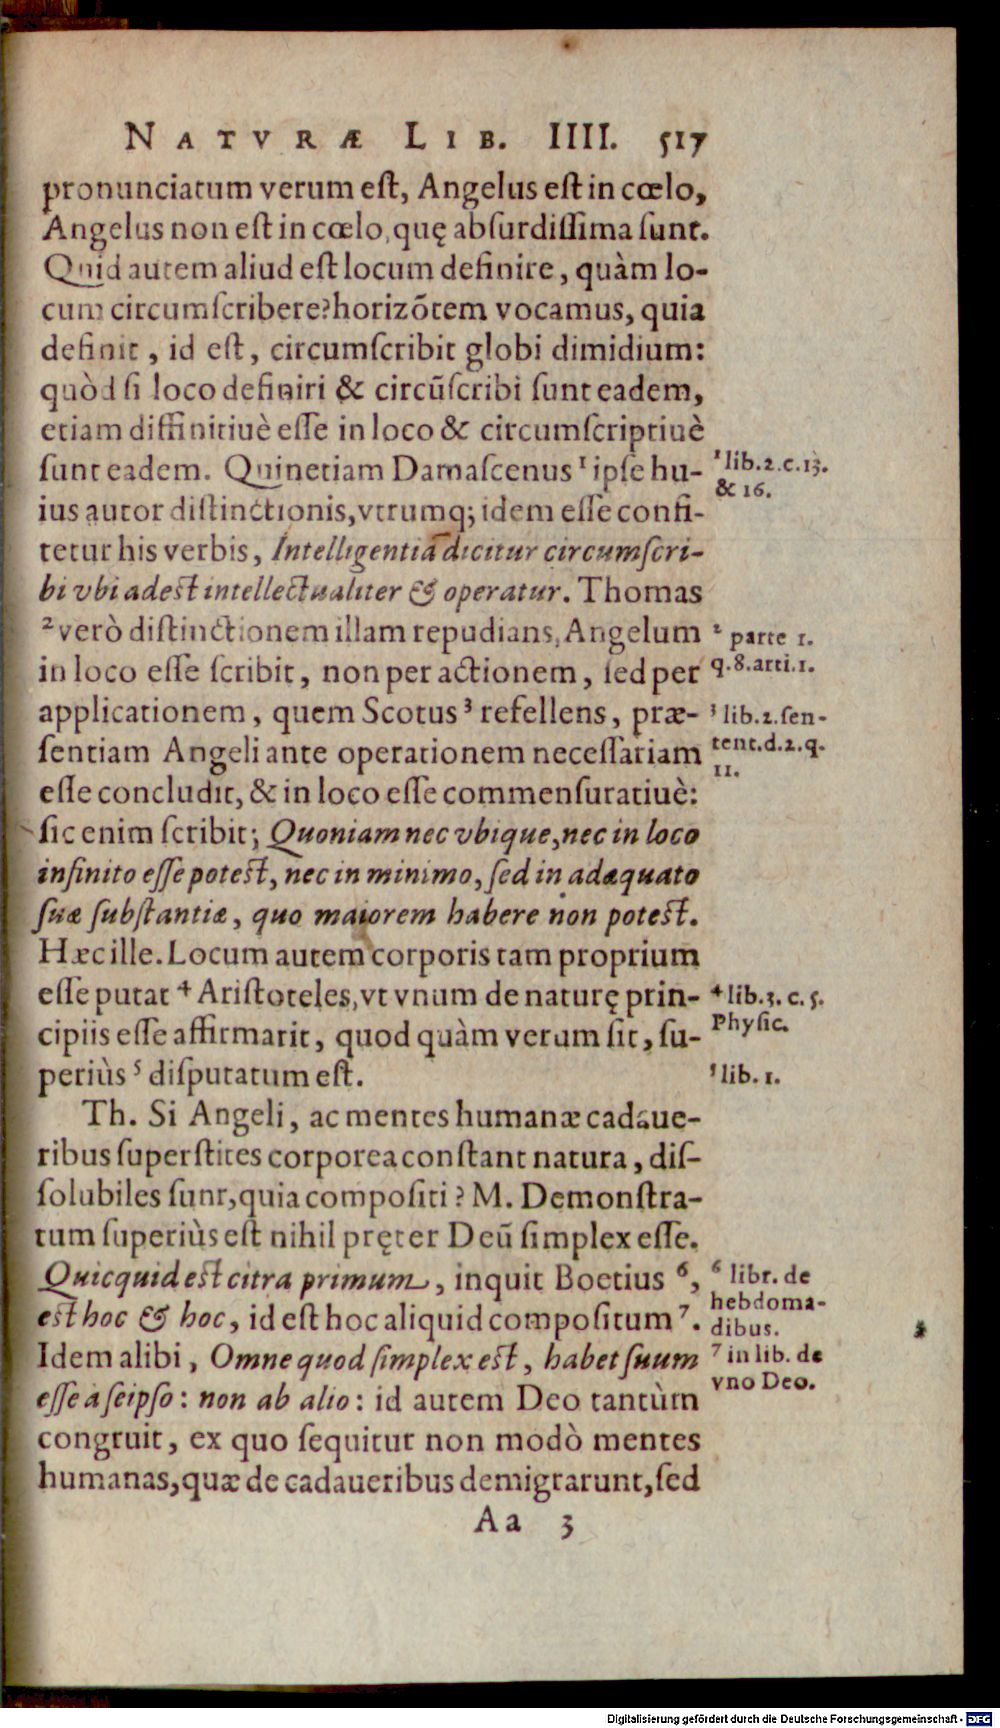 NATVRÆ LIB. IIII. 517
pronunciatum verum est, Angelus est in cœlo,
Angelus non est in cœlo, quę absurdissima sunt.
Quid autem aliud est locum definire, quàm lo-
cum circumscribere? horizõtem vocamus, quia
definit, id est, circumscribit globi dimidium:
quòd si loco definiri & circũscribi sunt eadem,
etiam diffinitiuè esse in loco & circumscriptiuè
sunt eadem. Quinetiam Damascenus ¹ ipse hu-
¹ lib. 2. c. 13.
& 16.
ius autor distinctionis, vtrumq; idem esse confi-
tetur his verbis, Intelligentiã dicitur circumscri-
bi vbi adest intellectualiter & operatur. Thomas
² verò distinctionem illam repudians, Angelum
² parte 1.
q. 8. arti. 1.
in loco esse scribit, non per actionem, sed per
applicationem, quem Scotus ³ refellens, præ-
³ lib. 2. sen-
tent. d. 2. q.
11.
sentiam Angeli ante operationem necessariam
esse concludit, & in loco esse commensuratiuè:
sic enim scribit; Quoniam nec vbique, nec in loco
infinito esse potest, nec in minimo, sed in adæquato
suæ substantiæ, quo maiorem habere non potest.
Hæc ille. Locum autem corporis tam proprium
esse putat ⁴ Aristoteles, vt vnum de naturę prin-
⁴ lib. 3. c. 5.
Physic.
cipiis esse affirmarit, quod quàm verum sit, su-
periùs ⁵ disputatum est.
⁵ lib. 1.
Th. Si Angeli, ac mentes humanæ cadaue-
ribus superstites corporea constant natura, dis-
solubiles sunt, quia compositi? M. Demonstra-
tum superiùs est nihil pręter Deũ simplex esse.
Quicquid est citra primum, inquit Boetius ⁶,
⁶ libr. de
hebdoma-
dibus.
est hoc & hoc, id est hoc aliquid compositum ⁷.
Idem alibi, Omne quod simplex est, habet suum
⁷ in lib. de
vno Deo.
esse à seipso: non ab alio: id autem Deo tantùm
congruit, ex quo sequitur non modò mentes
humanas, quæ de cadaueribus demigrarunt, sed
Aa 3
Digitalisierung gefördert durch die Deutsche Forschungsgemeinschaft - DFG